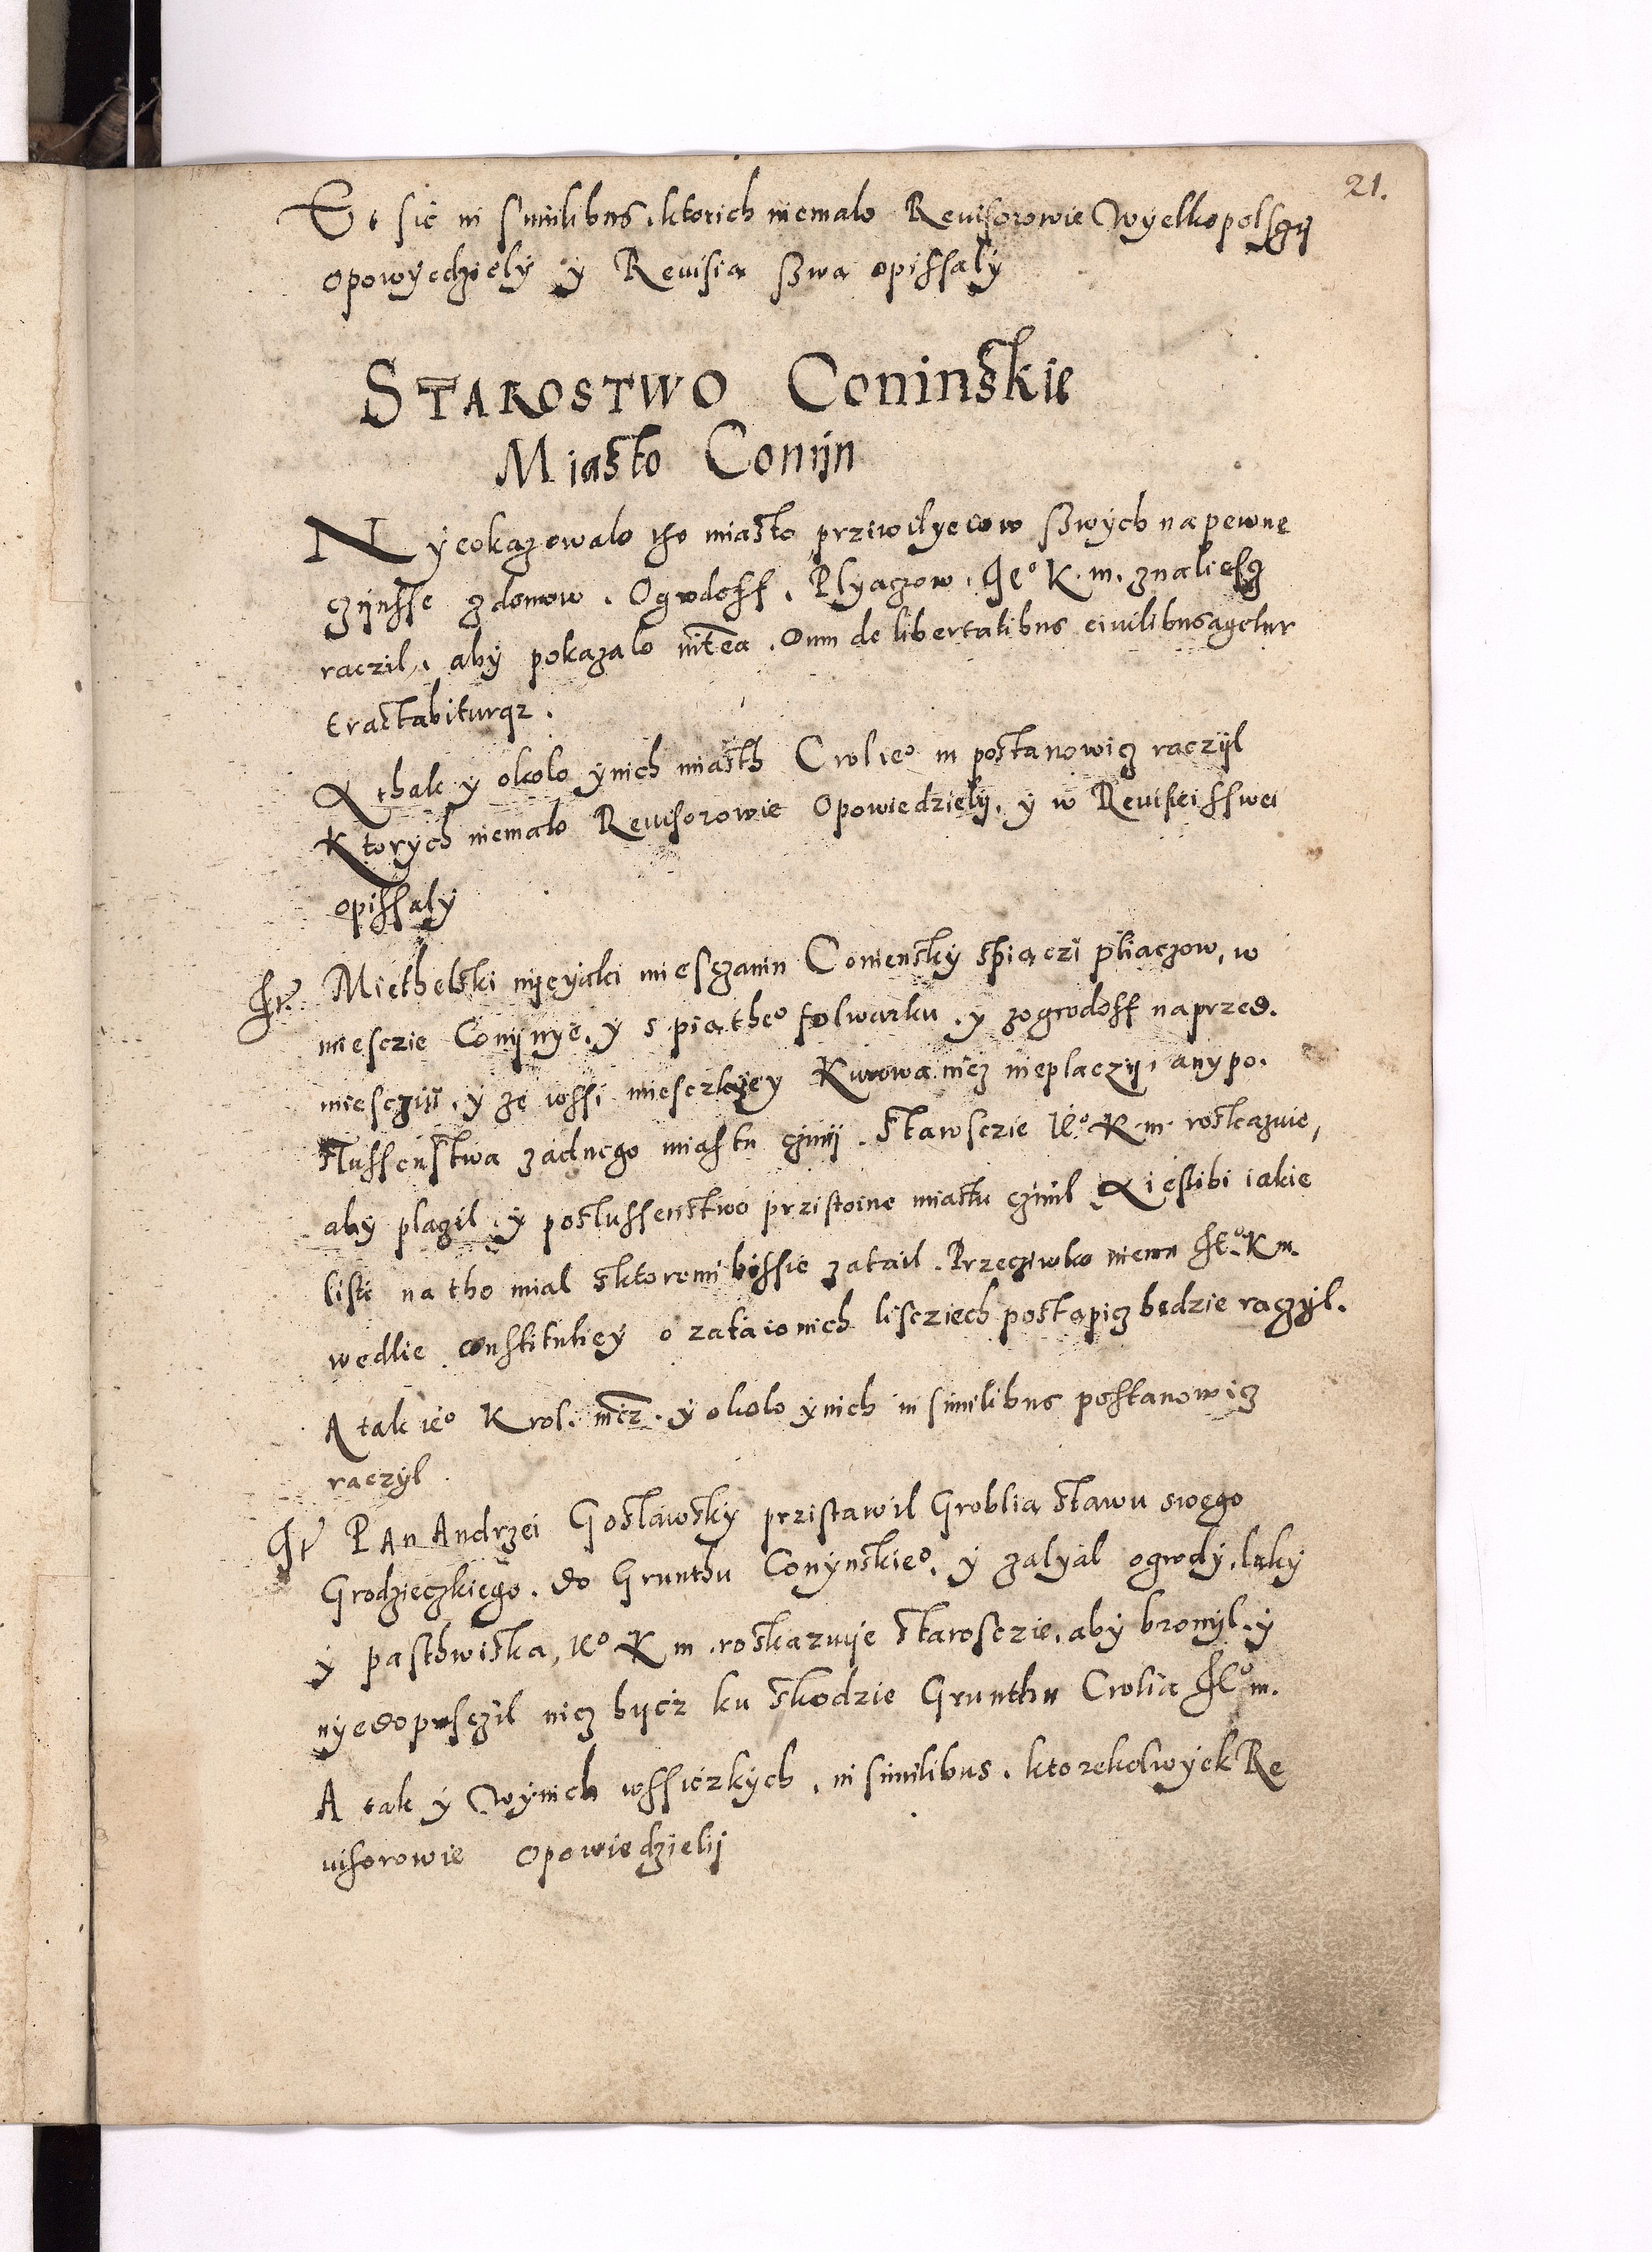 21.
Et sic in similibus, ktorich niemalo Revisorowie Wyelkopolsczy
opowyedziely y Revisia szwa opissaly
STAROSTWO Coninskie
Miasto Conijn
Nyeokazowalo tho miasto przivilyeiow szwych na pewne
czijnsse z domow, Ogrodoff, Plyaczow, Ie° K. m. znaliesz
raczil, aby pokazalo interea. Dum de libertatibus civilibus agetur
tractabiturqz.
A thak y okolo ynich miasth Crol ie° m postanowicz raczÿl
Ktorych niemalo Revisorowie Opowiedzielij, y w Revisiei sswei
opissaly
It. Miethelski nijeÿaki miesczanin Conienskÿ s piączi pliaczow, w
miesczie Conijnyé, ÿ s piąthe° folwarku, y zogrodoff na przed.
miesczijú, y ze wssi miesczkijey Kurowa nicz nieplaczij, any po.
slussenstwa zadnego miastu czinij. Starosczie Ie° K. m. roskazuie,
aby placzil, ÿ poslussenstwo przistoine miastu czinil A iestlibi iakie
listi na tho mial sktoremi bi ssie zatail. Przecziwko niemu Ie°. K m.
wedlie constitutiey o zataionich lisciech postąpicz bedzie raczÿl.
A tak ie° Krol. mcz. ÿ okolo ynich in similibus postanowicz
raczÿl
It PAn Andrzei Goslawskÿ przistawil Groblią stawu swego
Grodzieczkiego, do Grunthu Conÿnskie°, ÿ zalyal ogrody, ląkÿ
y pasthwiska, Ie° K m. roskazuije starosczie, aby bronÿl, ÿ
nÿedopusczil nicz bijcz ku skodzie Grunthu Crolia Ie° m.
A tak ÿ Wynich wssiczkÿch, in similibus, ktorekolwÿek Re
visorowie Opowiedzielij